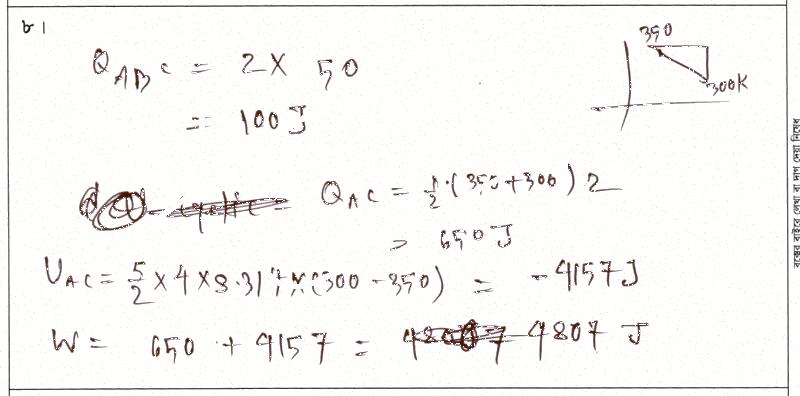 ৮।
Q_ABC = 2 × 50
= 100 J
350
300K
Q_AC = 1/2 · (350 + 300) 2
= 650 J
U_AC = 5/2 × 4 × 8.314 × (300 - 350) = - 4157 J
W = 650 + 4157 = 4807 J
বক্সের বাইরে লেখা বা দাগ দেয়া নিষেধ